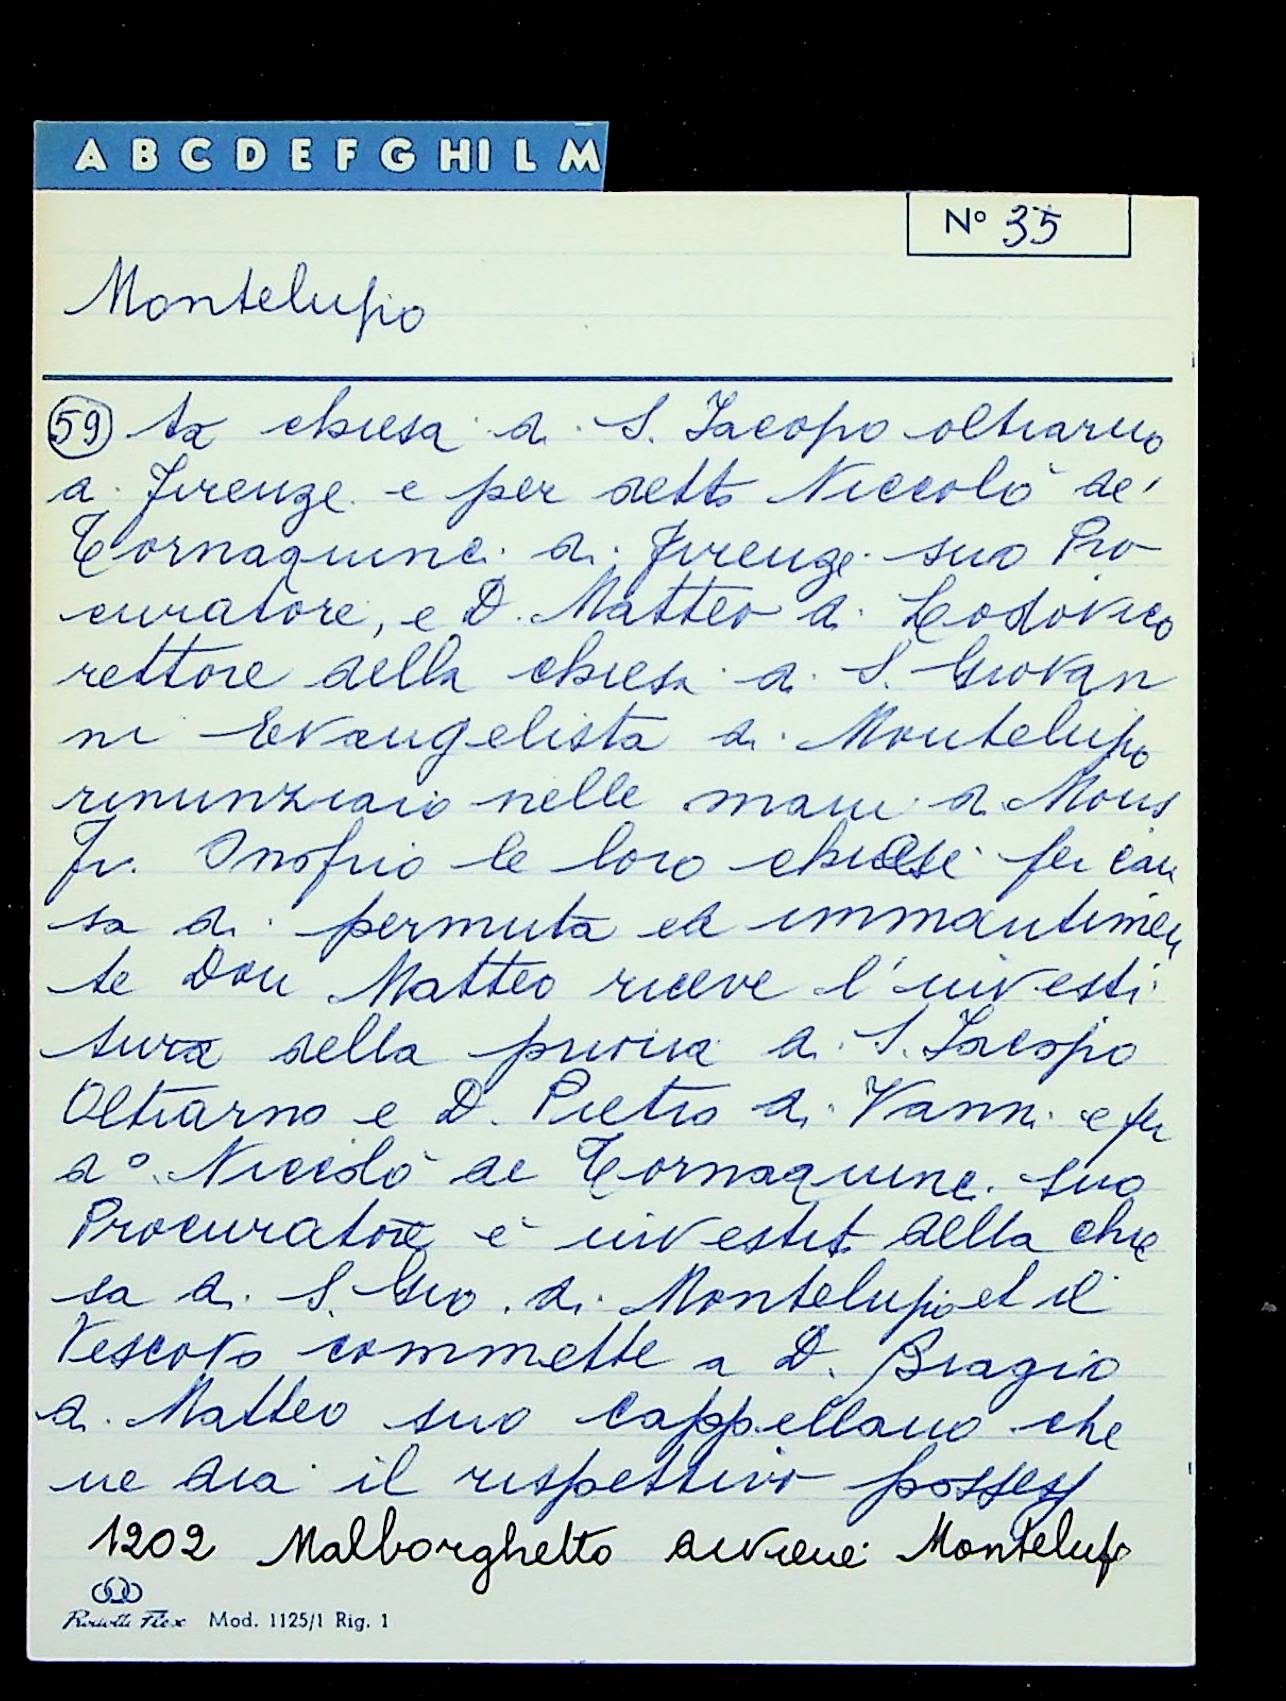 A B C D E F G HI L M
N° 35
Montelupo
59 ta chiesa di S. Jacopo oltrarno
a Firenze e per detto Niccolò de'
Tornaquinci di Firenze suo Pro
curatore, e D. Matteo di Lodovico
rettore della chiesa di S. Giovan
ni Evangelista di Montelupo
rinunziaro nelle mani di Mons
Fr. Onofrio le loro chiese per cau
sa di permuta ed immantinen
te Don Matteo riceve l'investi
tura della prioria di S. Jacopo
Oltrarno e D. Pietro di Vanni e per
d° Niccolò de Tornaquinci suo
Procuratore è investito della chie
sa di S. Gio. di Montelupo et il
Vescovo commette a D. Biagio
di Matteo suo cappellano che
ne dia il rispettivo possess
1202 Malborghetto diviene Montelupo
Mod. 1125/1 Rig. 1